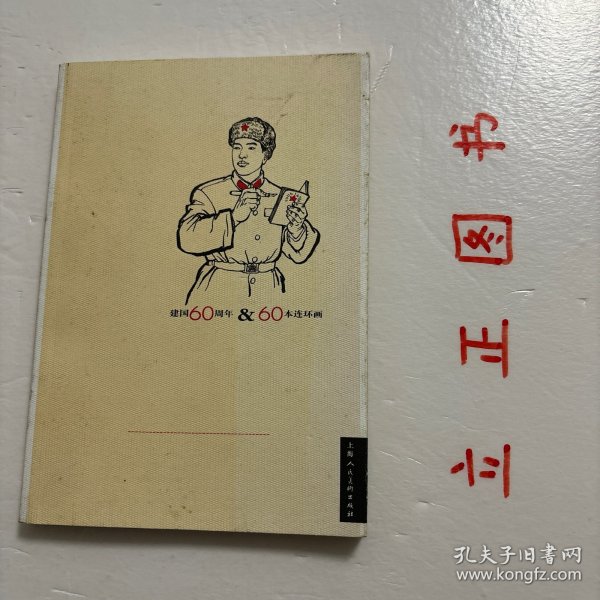 建国60周年 & 60本连环画
上海人民美术出版社
立正图书
孔夫子旧书网
www.kongfz.com